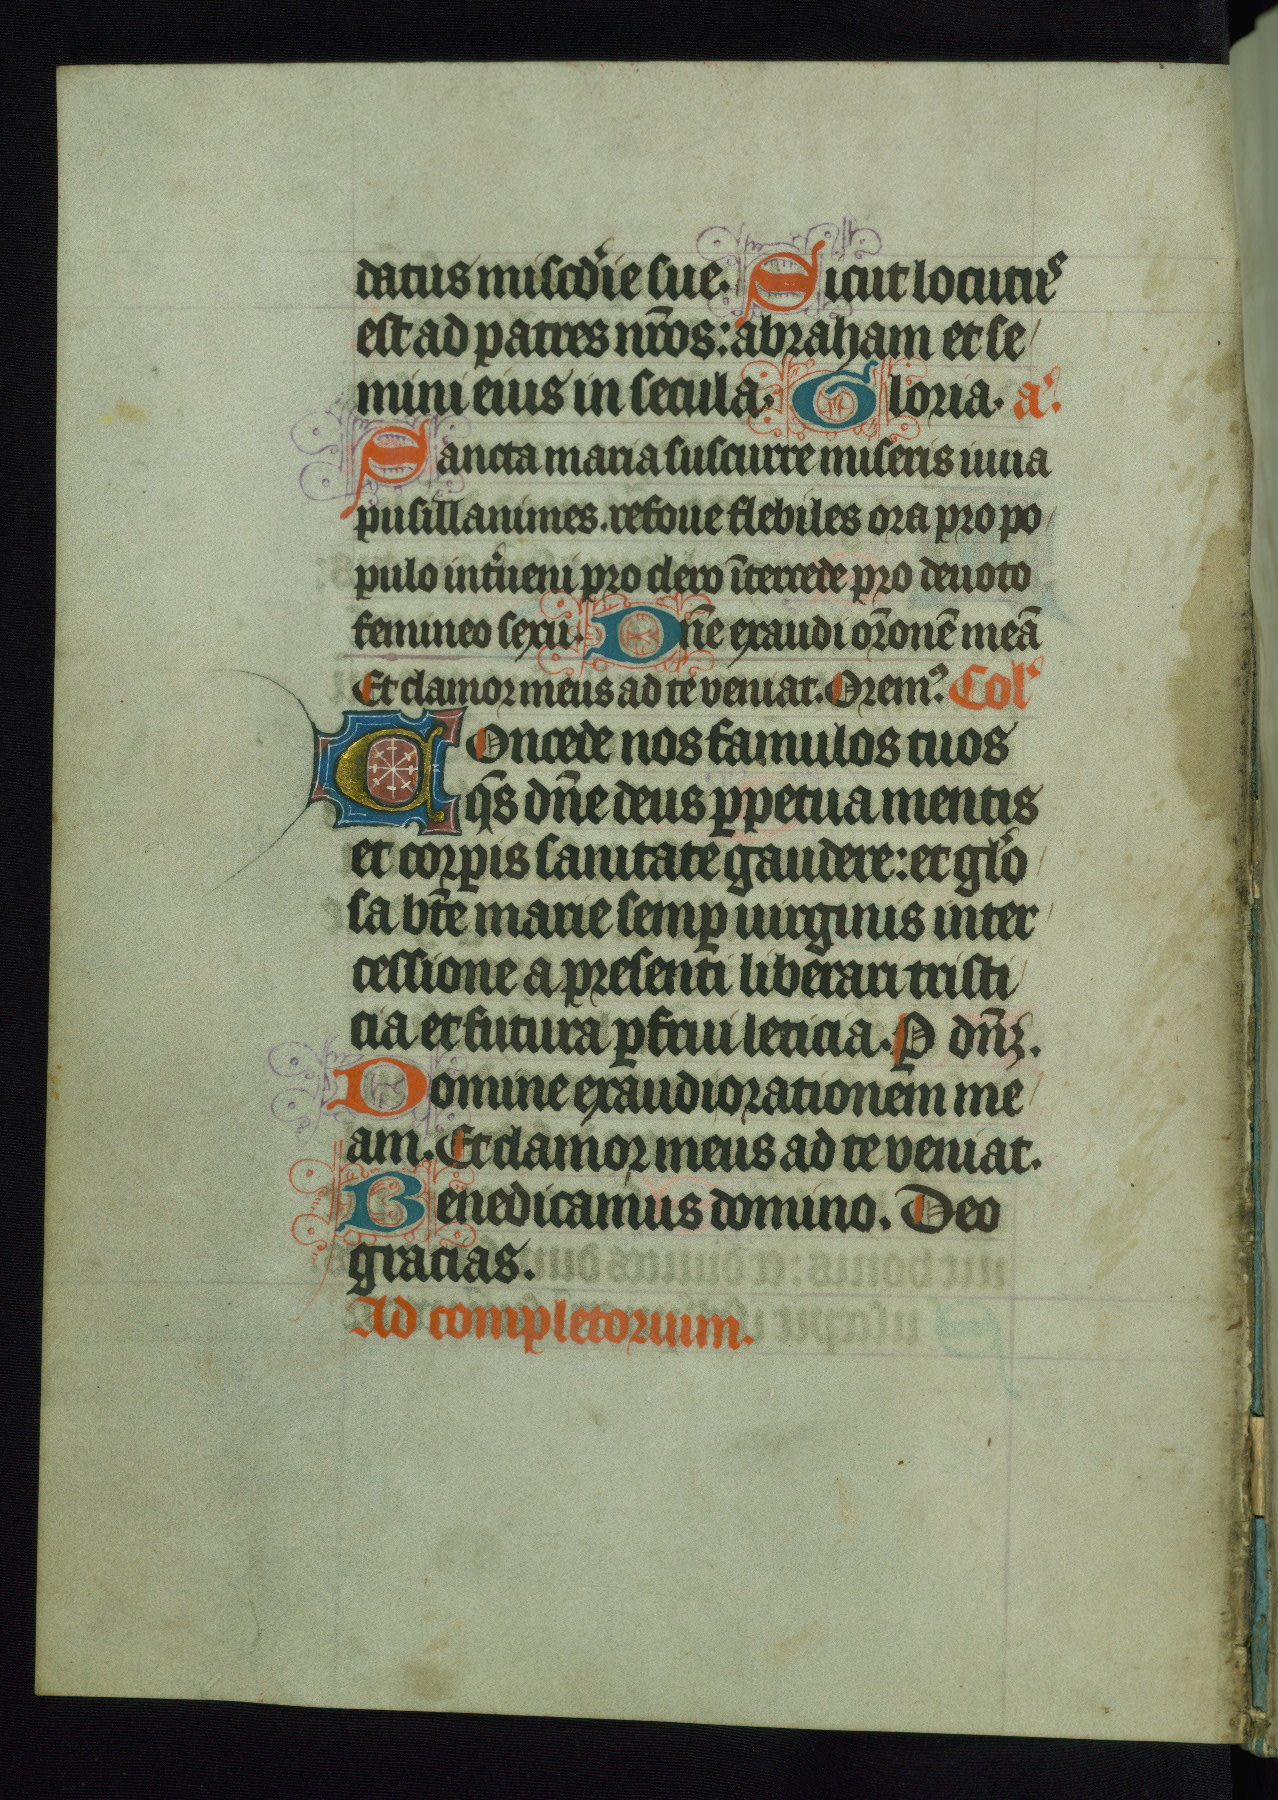 datus mis̃cdie sue. Sicut locutus
est ad patres nr̃os: abraham et se
mini eius in secula. Gloria. a.
Sancta maria suscurre miseris iuua
pusillanimes. refoue flebiles ora pro po
pulo int̾ueni pro clero ĩtercede pro deuoto
femineo sexu. Dñe exaudi or̃onẽ meã
Et clamor meus ad te veniat. Oremꝰ. Col
COncede nos famulos tuos
q̃s dñe deus ꝑpetua mentis
et corꝑis sanitate gaudere: et gl̾o
sa btẽ marie semꝑ uirginis inter
cessione a presenti liberari tristi
cia et futura ꝑfrui leticia. P dñꝫ.
Domine exaudi orationem me
am. Et clamor meus ad te veniat.
Benedicamus domino. Deo
gracias.
Ad completorium.